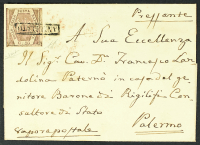 Pressante
A Sua Eccellenza
Il Sig.r Cav. D.n Francesco Lan
dolina Paternò in casa del ge
nitore Barone di Rigilifi Con
sultore di Stato
Vapore postale
Palermo